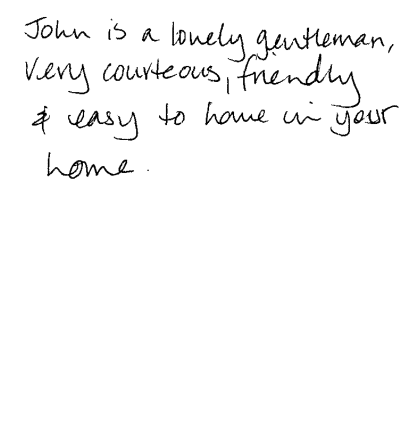 John is a lovely gentleman,
very courteous, friendly
& easy to have in your
home.